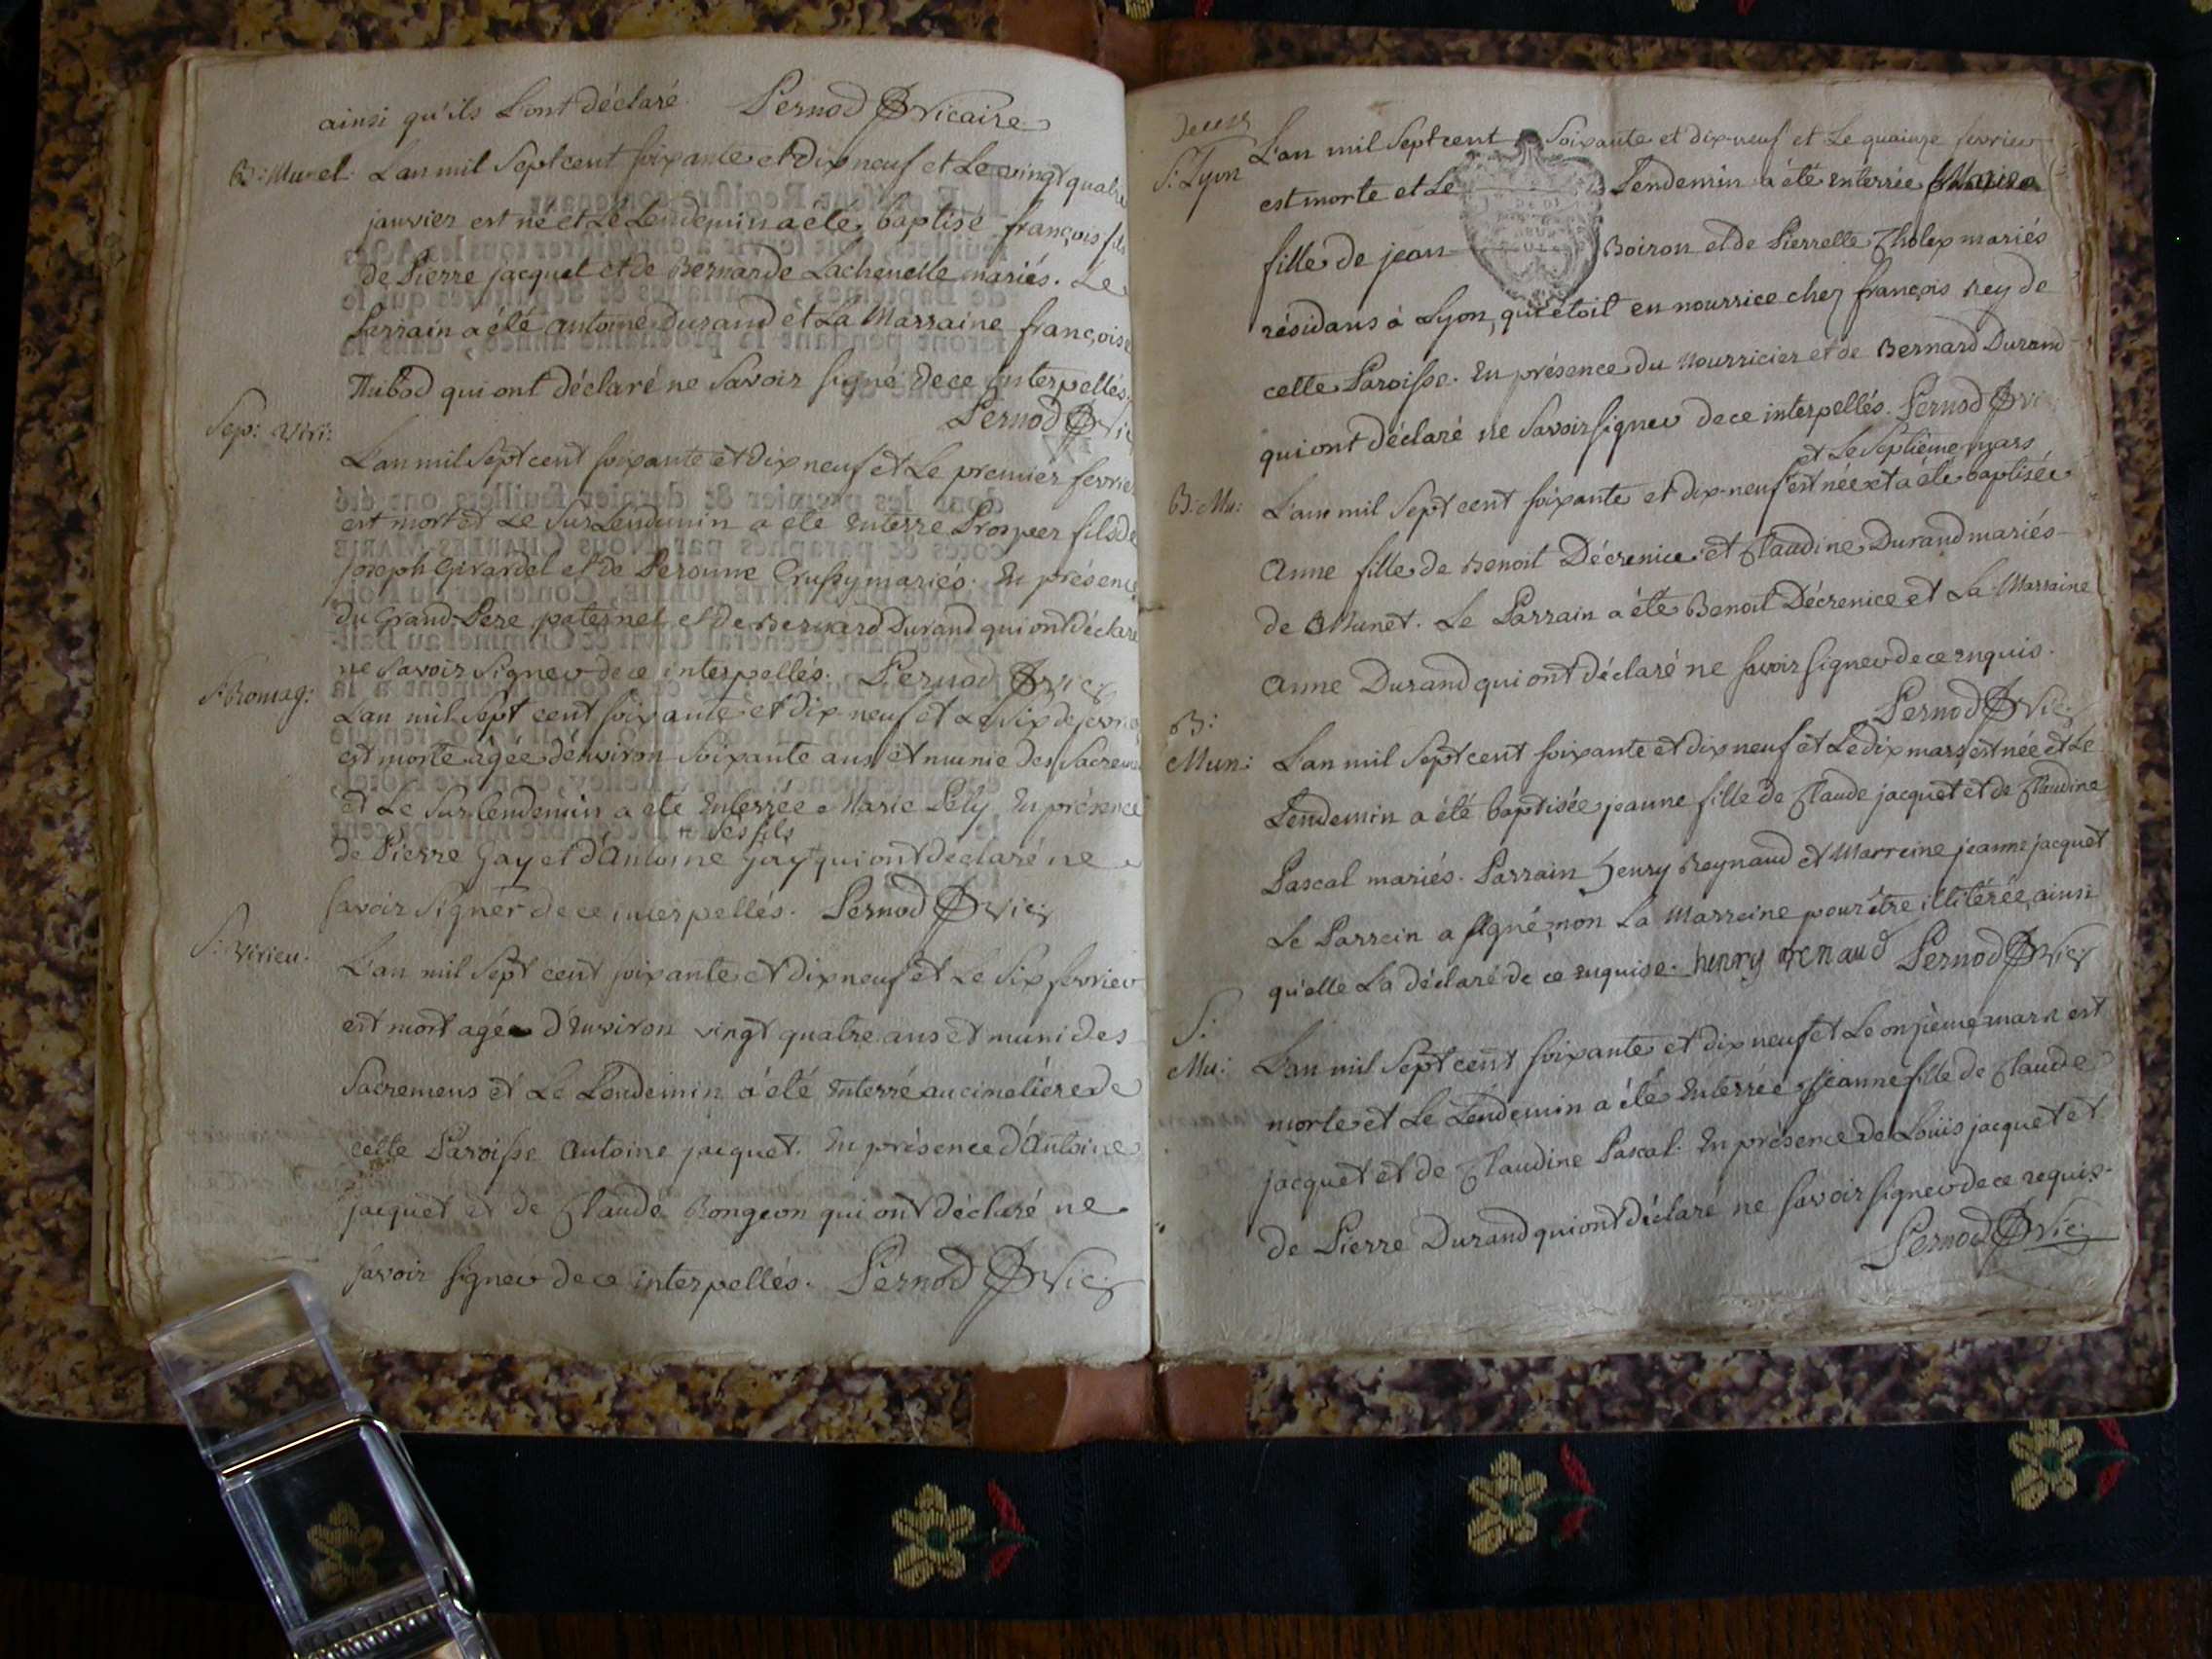 ainsi qu'ils L'ont déclaré. Pernod Vicaire
B: Munet: L'an mil Sept cent soixante et dix neuf et Le vingt quatre
janvier est né et Le Lendemin a été baptisé françois fils
de Pierre jacquet et de Bernarde Lachenelle mariés. Le
Parrain a été antoine Durand et La Marraine françoise
qui ont déclaré ne Savoir signé de ce interpellés.
Pernod Vic
Sep: Viri:
L'an mil Sept cent soixante et dix neuf et Le premier fevrier
est mort et Le SurLendemin a été enterré Prosper fils de
joseph Girardel et de Peronne mariés. En présence
du Grand-Pere paternel et de Bernard Durand qui ont déclaré
ne Savoir Signer de ce interpellés. Pernod Vic:
S: Romag:
L'an mil Sept cent soixante et dix-neuf et Le Six de fevrier
est morte agée d'environ Soixante ans et munie des Sacremens
et Le Surlendemin a été enterrée Marie Pély En présence
# Ses fils
de Pierre Gay et d'Antoine Gay # qui ont déclaré ne
savoir Signer de ce interpellés. Pernod Vic:
S: Virieu.
L'an mil Sept cent soixante et dix neuf et Le Six fevrier
est mort agé d'environ vingt quatre ans et muni des
Sacremens et Le Lendemin a été enterré au cimetiére de
cette Paroisse Antoine jacquet. En présence d'Antoine
jacquet et de Claude Rongeon qui ont déclaré ne
savoir signer de ce interpellés. Pernod Vic:
S: Lyon
L'an mil Sept cent Soixante et dix-neuf et Le quainze fevrier
est morte et Le Lendemin a été enterrée
fille de jean Boiron et de Pierrette Tholex mariés
résidans à Lyon, qui étoit en nourrice chez françois Rey de
cette Paroisse. En présence du Nourricier et de Bernard Durand
qui ont déclaré ne Savoir signer de ce interpellés. Pernod Vic
et Le Septième mars
B: Mu: L'an mil Sept cent soixante et dix-neuf est née et a été baptisée
Anne fille de Benoit Décrenice et Claudine Durand mariés
de Munet. Le Parrain a été Benoit Décrenice et La Marraine
Anne Durand qui ont déclaré ne savoir signer de ce enquis.
Pernod Vic:
B:
Mun: L'an mil Sept cent soixante et dix neuf et Le dix mars est née et Le
Lendemin a été baptisée jeanne fille de Claude jacquet et de Claudine
Pascal mariés. Parrain henry Reynaud et Marreine jeanne jacquet
Le Parrein a signé, non La Marreine pour être illitérée, ainsi
qu'elle L'a déclaré de ce enquise. henry renaud Pernod Vic:
S:
Mu: L'an mil Sept cent soixante et dix neuf et Le onzième mars est
morte et Le Lendemin a été enterrée jeanne fille de Claude
jacquet et de Claudine Pascal. En présence de Loüis jacquet et
de Pierre Durand qui ont déclaré ne savoir signer de ce requis.
Pernod Vic: